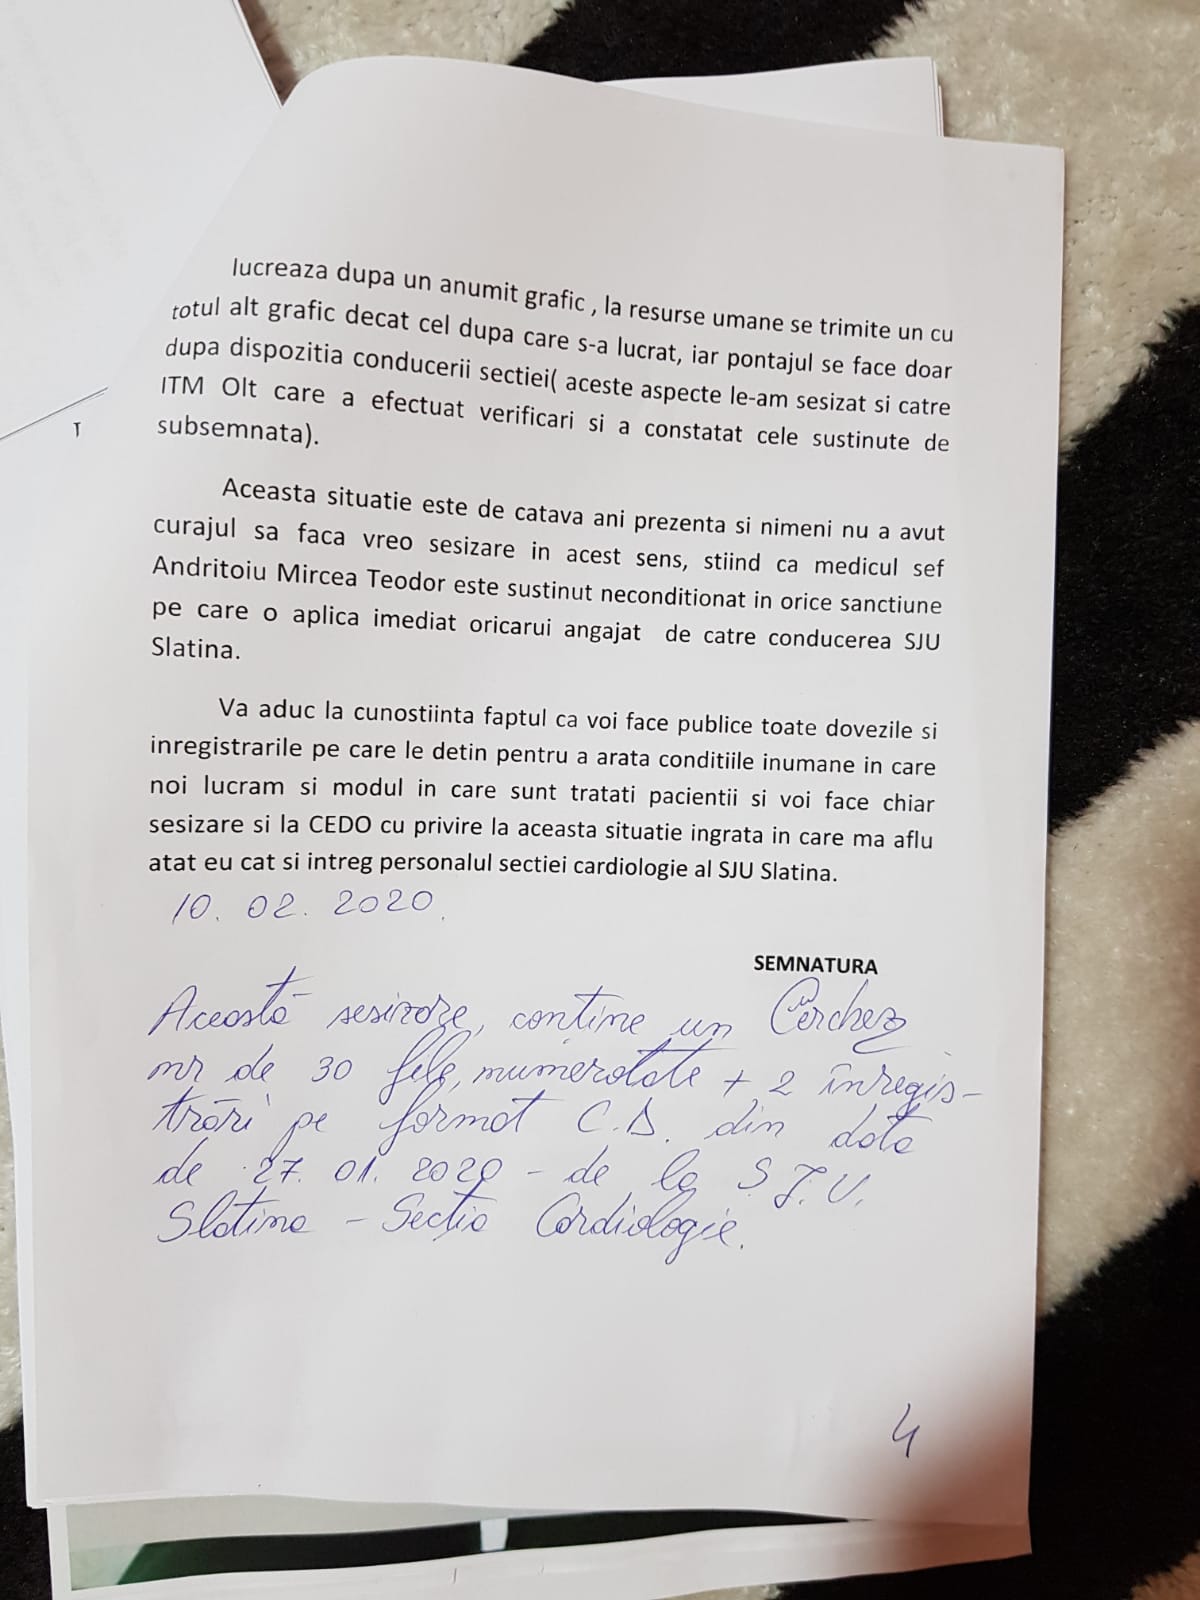 lucreaza dupa un anumit grafic , la resurse umane se trimite un cu
totul alt grafic decat cel dupa care s-a lucrat, iar pontajul se face doar
dupa dispozitia conducerii sectiei( aceste aspecte le-am sesizat si catre
ITM Olt care a efectuat verificari si a constatat cele sustinute de
subsemnata).
Aceasta situatie este de catava ani prezenta si nimeni nu a avut
curajul sa faca vreo sesizare in acest sens, stiind ca medicul sef
Andritoiu Mircea Teodor este sustinut neconditionat in orice sanctiune
pe care o aplica imediat oricarui angajat de catre conducerea SJU
Slatina.
Va aduc la cunostiinta faptul ca voi face publice toate dovezile si
inregistrarile pe care le detin pentru a arata conditiile inumane in care
noi lucram si modul in care sunt tratati pacientii si voi face chiar
sesizare si la CEDO cu privire la aceasta situatie ingrata in care ma aflu
atat eu cat si intreg personalul sectiei cardiologie al SJU Slatina.
10. 02. 2020.
SEMNATURA
Cerchez
Această sesizare, conține un
nr de 30 file, numerotate + 2 înregis-
trări pe format C.D. din data
de 27. 01. 2020 - de la S.J.U.
Slatina - Secția Cardiologie.
4